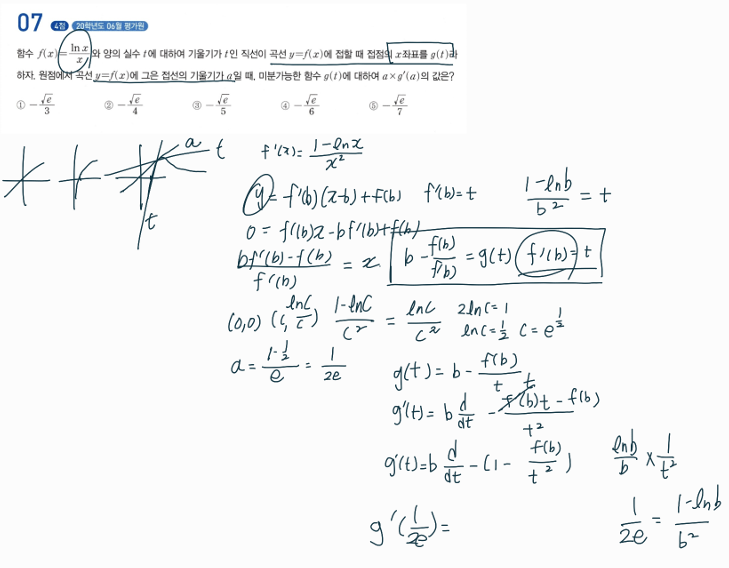 07 4점 20학년도 06월 평가원
함수 f(x)=ln x/x와 양의 실수 t에 대하여 기울기가 t인 직선이 곡선 y=f(x)에 접할 때 접점의 x좌표를 g(t)라
하자. 원점에서 곡선 y=f(x)에 그은 접선의 기울기가 a일 때, 미분가능한 함수 g(t)에 대하여 a×g′(a)의 값은?
① -√e/3 ② -√e/4 ③ -√e/5 ④ -√e/6 ⑤ -√e/7
a t
t
f'(x)= 1-lnx/x²
y = f'(b)(x-b)+f(b) f'(b)=t 1-lnb/b² = t
0 = f'(b)x-bf'(b)+f(b)
bf'(b)-f(b)/f'(b) = x b - f(b)/f'(b) = g(t) f'(b)=t
(0,0) (c, lnc/c) 1-lnC/C² = lnC/C² 2lnC=1
lnC=1/2 C=e^(1/2)
a = 1-1/2/e = 1/2e
g(t) = b - f(b)/t
g'(t) = b d/dt - f'(b)t-f(b)/t² t
g'(t)=b d/dt - (1 - f(b)/t²) lnb/b × 1/t²
g'(1/2e)= 1/2e = 1-lnb/b²